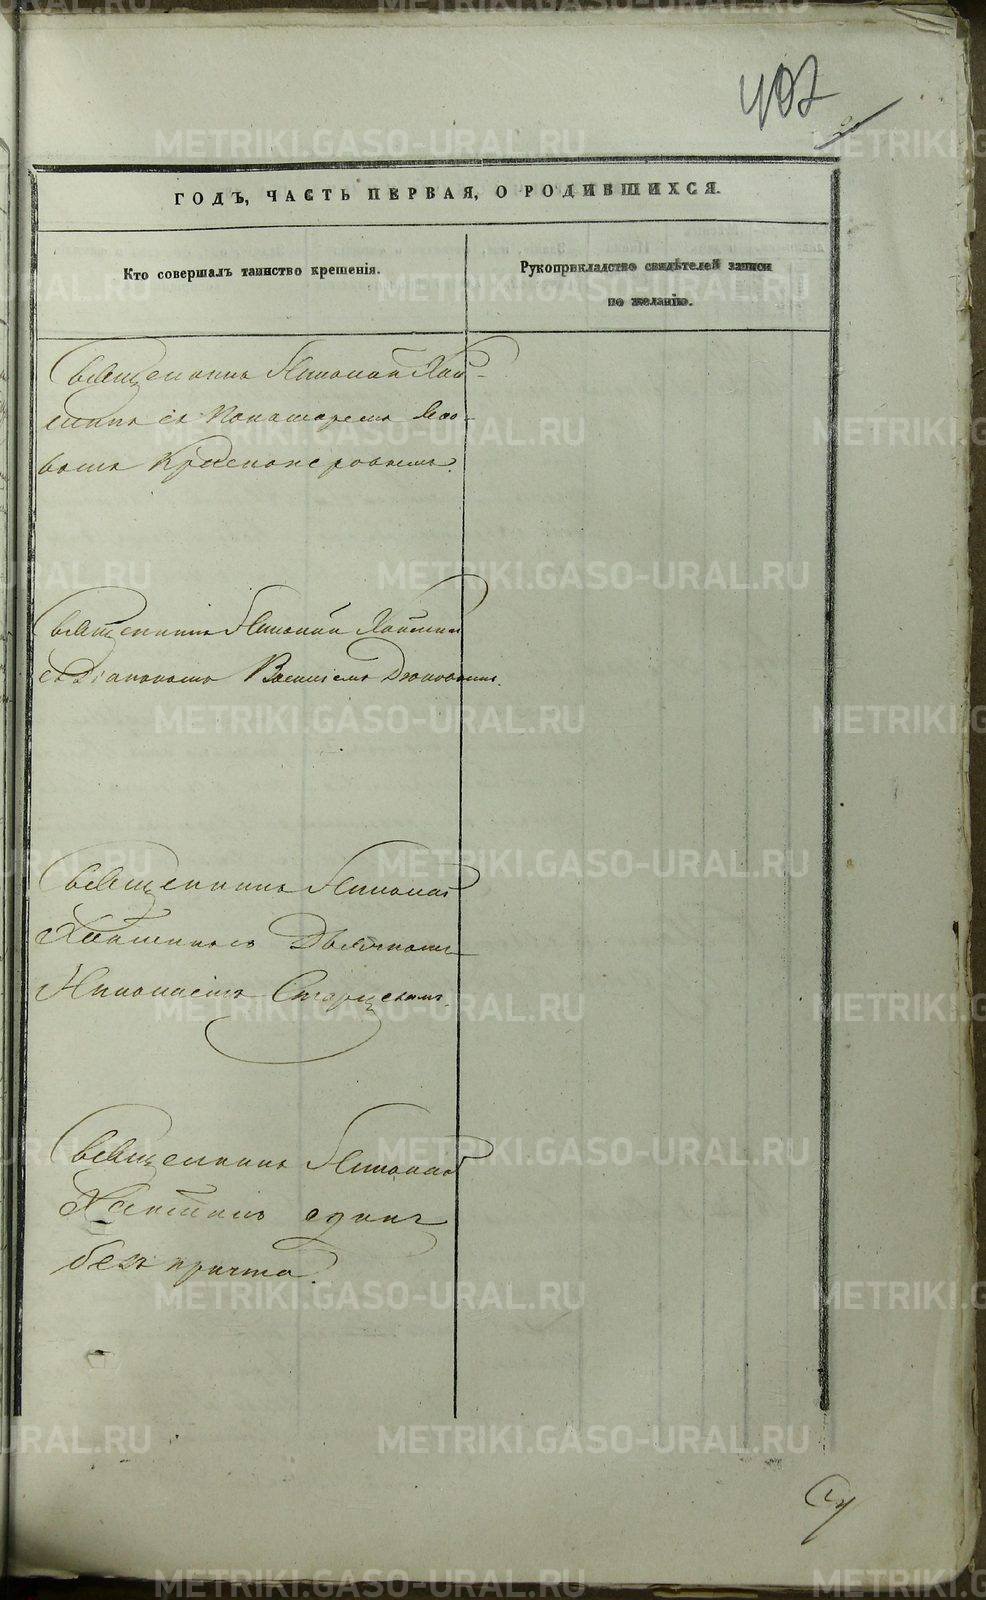 407
ГОДЪ, ЧАСТЬ ПЕРВАЯ, О РОДИВШИХСЯ.
Кто совершалъ таинство крещенія.
Рукоприкладство свидѣтелей записи
по желанію.
Священникъ Николай
съ Пономаремъ
Красноперовымъ.
Священникъ Николай
съ Діакономъ Василіемъ
Священникъ Николай
Дьячкомъ
Николаемъ
Священникъ Николай
одинъ
безъ причта.
METRIKI.GASO-URAL.RU